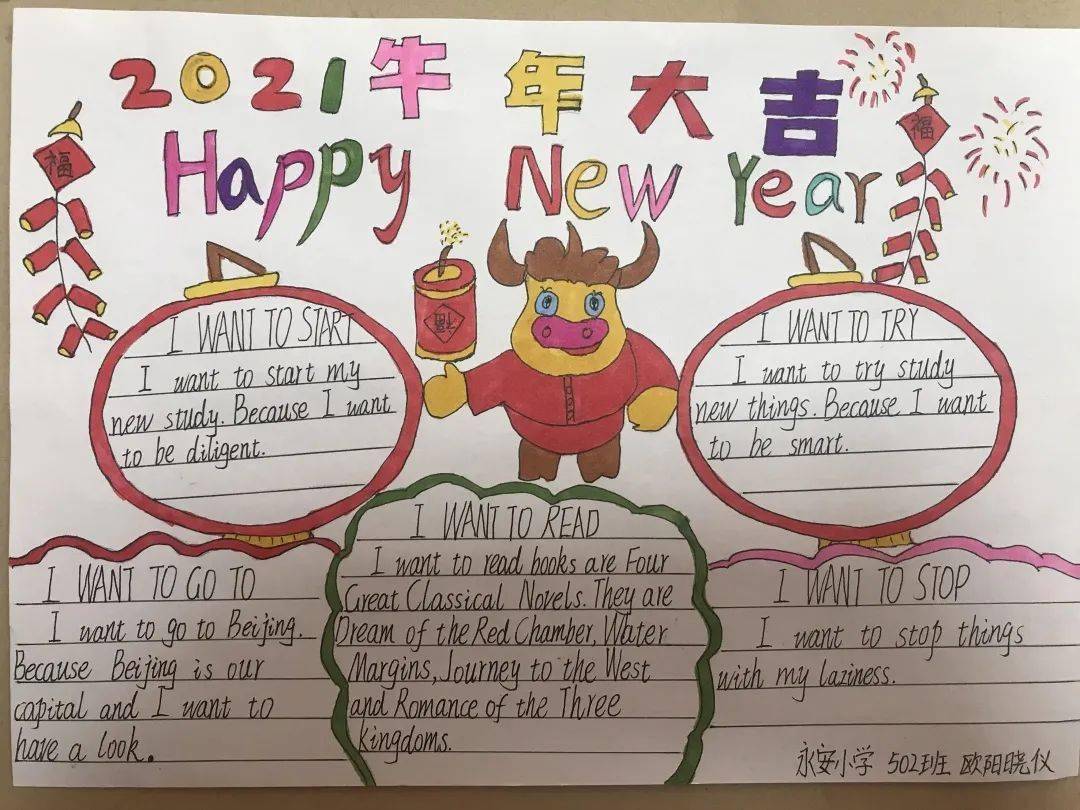 2021牛年大吉
Happy New Year
福
福
福
I WANT TO START
I want to start my
new study. Because I want
to be diligent.
I WANT TO TRY
I want to try study
new things. Because I want
to be smart.
I WANT TO GO TO
I want to go to Beijing.
Because Beijing is our
capital and I want to
have a look.
I WANT TO READ
I want to read books are Four
Great Classical Novels. They are
Dream of the Red Chamber, Water
Margins, Journey to the West
and Romance of the Three
Kingdoms.
I WANT TO STOP
I want to stop things
with my laziness.
永安小学 502班 欧阳晓仪